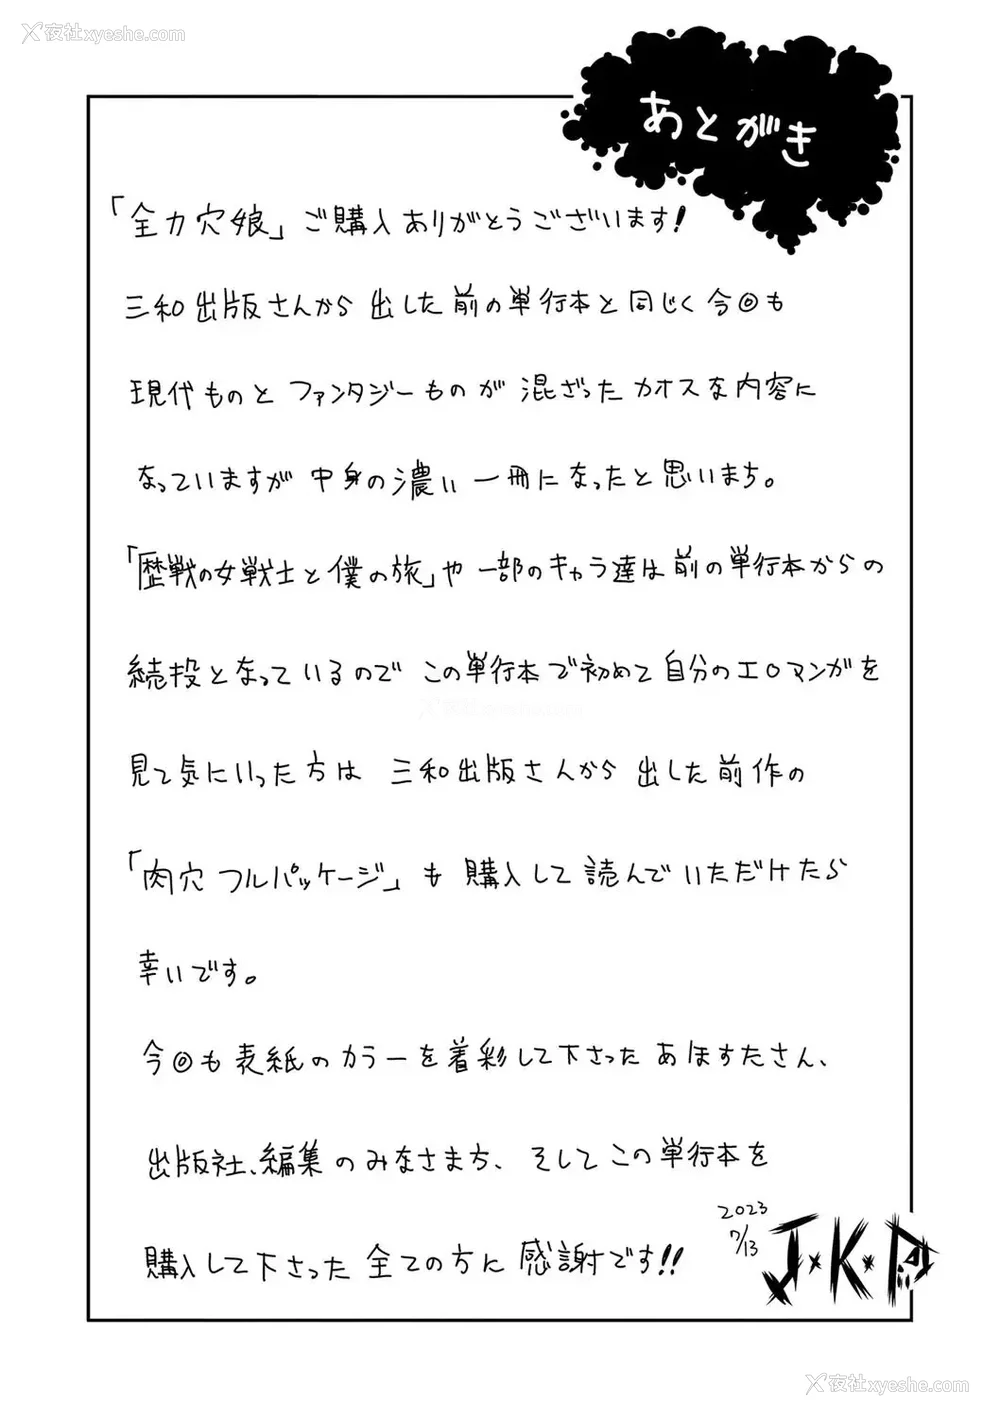 夜社xyeshe.com
あとがき
「全力穴娘」ご購入ありがとうございます!
三和出版さんから出した前の単行本と同じく今回も
現代ものとファンタジーものが混ざったカオスな内容に
なっていますが中身の濃い一冊になったと思いまち。
「歴戦の女戦士と僕の旅」や一部のキャラ達は前の単行本からの
続投となっているのでこの単行本で初めて自分のエロマンガを
見て気にいった方は三和出版さんから出した前作の
「肉穴フルパッケージ」も購入して読んでいただけたら
幸いです。
今回も表紙のカラーを着彩して下さったあほすたさん、
出版社、編集のみなさまち、そしてこの単行本を
購入して下さった全ての方に感謝です!!
2023
7/13
J・K・P
夜社xyeshe.com